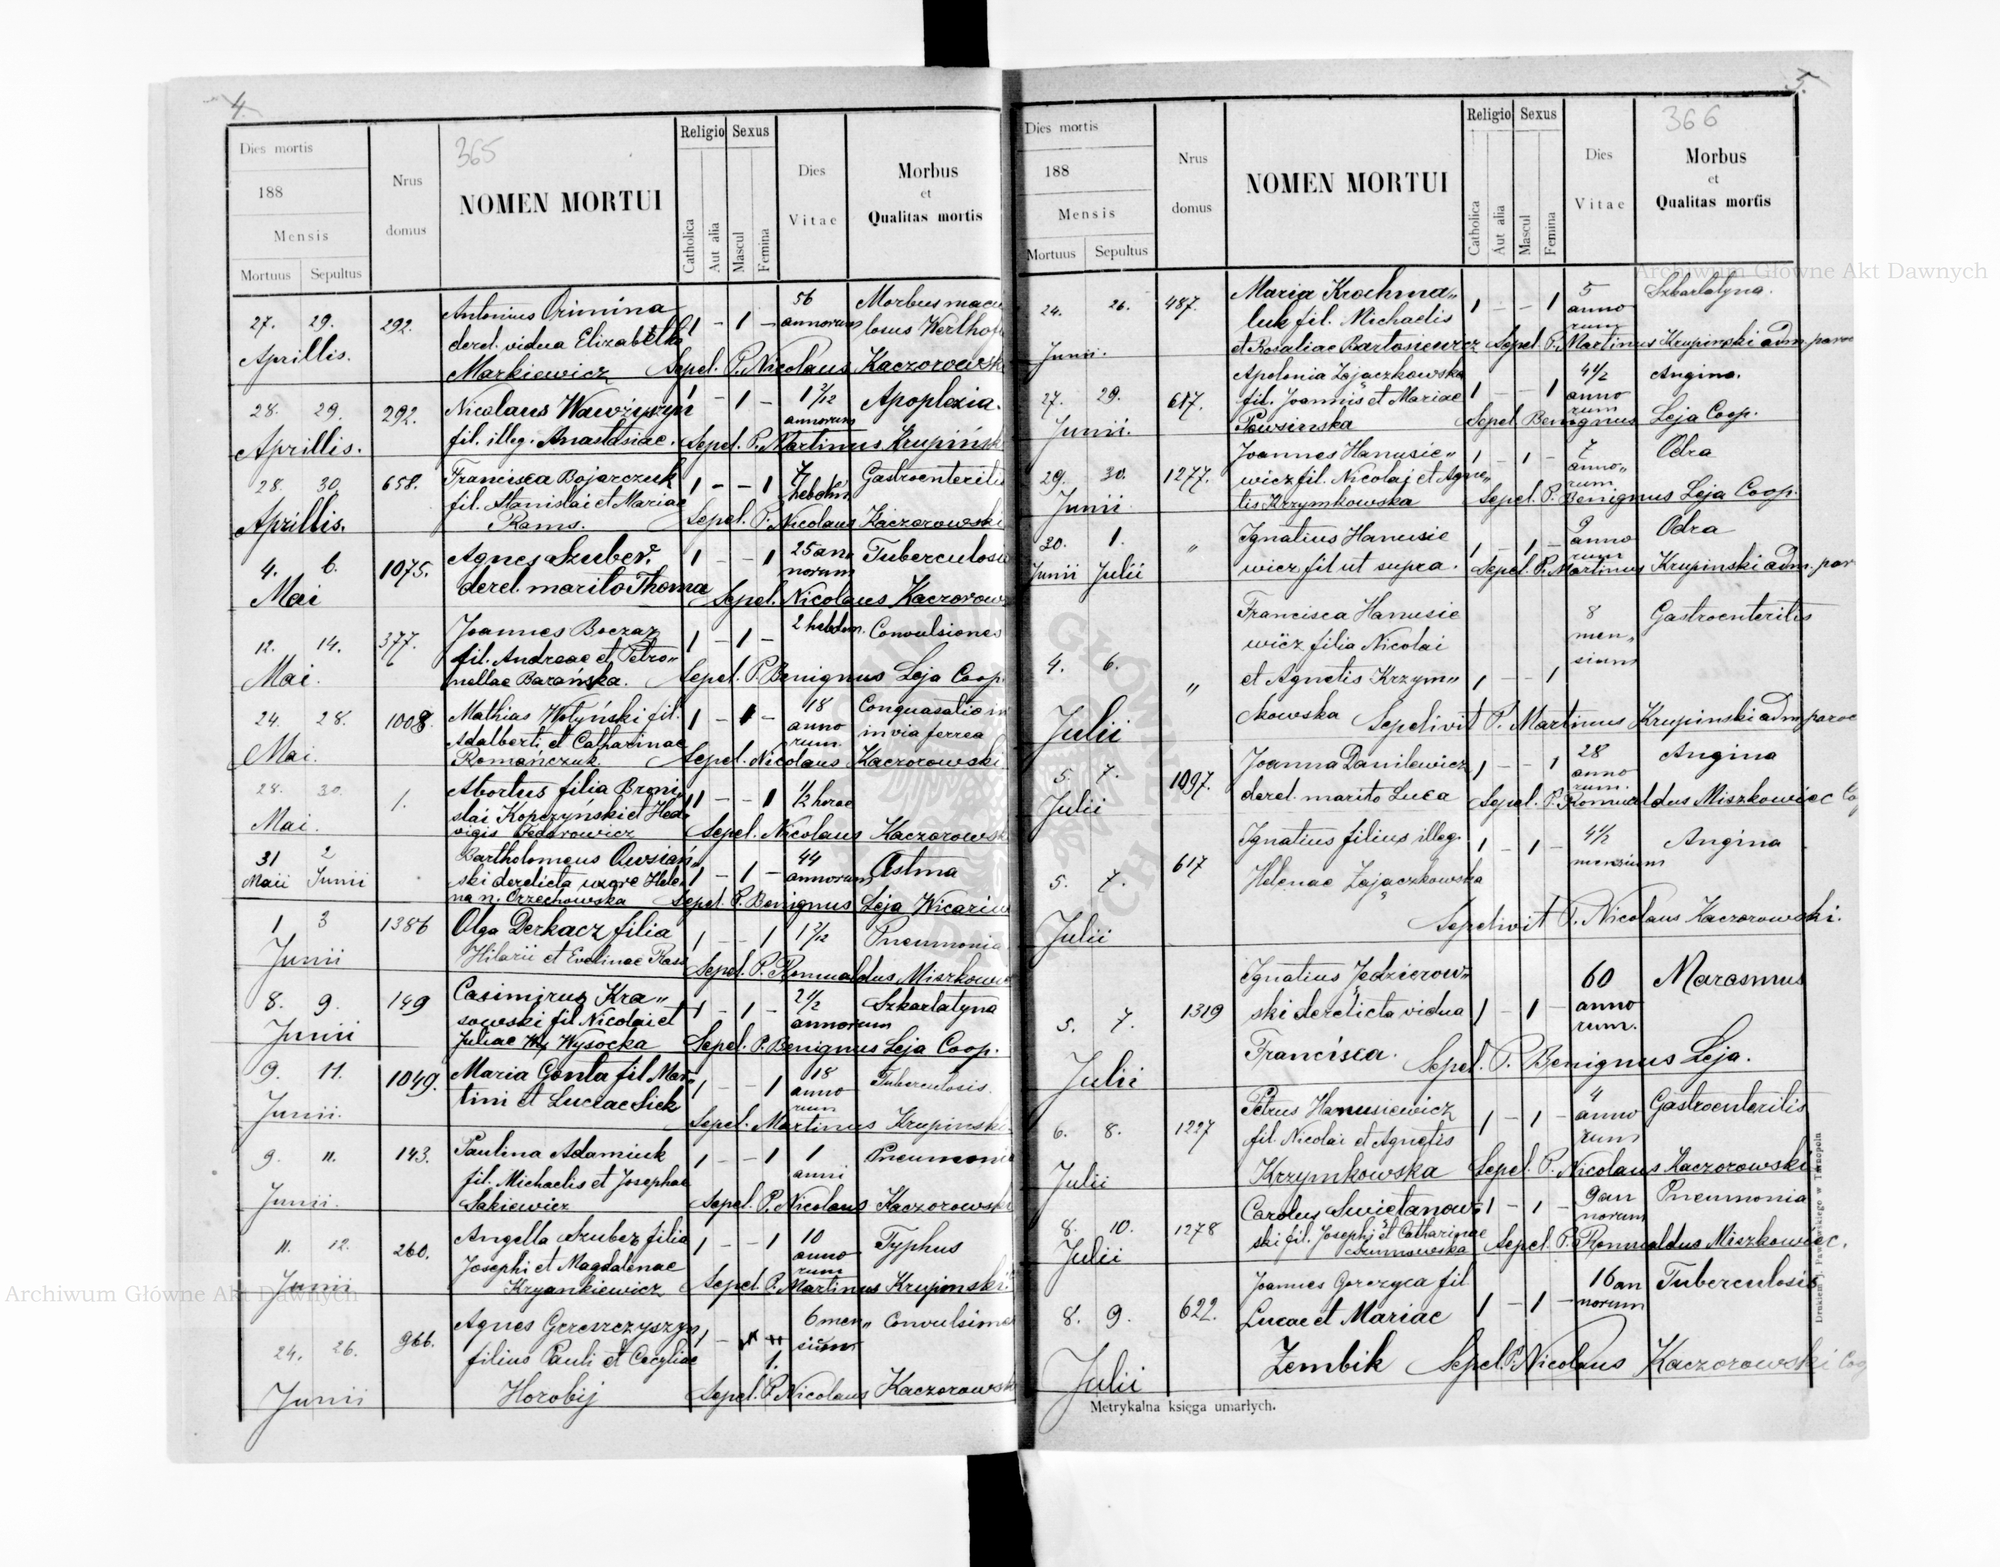 4.
365
Dies mortis
188
Mensis
Mortuus Sepultus
Nrus domus
NOMEN MORTUI
Religio
Catholica
Aut alia
Sexus
Mascul
Femina
Dies Vitae
Morbus
et
Qualitas mortis
27. 29. 292. Antonius Orimina 1 – 1 – 56 Morbus macu
Aprillis. derel. vidua Elizabetha annorum losus Werlhof
Markiewicz Sepel. P. Nicolaus Kaczorowsk
28. 29. 292. Nicolaus Wawrzyszyn 1 – 1 – 1 2/12 Apoplexia.
Aprillis. fil. illeg. Anastasiae. annorum
Sepel. P. Martinus Krupińsk
28. 30. 658. Francisca Bojarczuk 1 – – 1 7 Gastroenteritis
Aprillis. fil. Stanislai et Mariae hebdm
Rams. Sepel. P. Nicolaus Kaczorowski
4. 6. 1075. Agnes Szuber. 1 – – 1 25 an Tuberculosis
Mai derel. marito Thoma norum
Sepel. Nicolaus Kaczorow
12. 14. 377. Joannes Boczaz 1 – 1 – 2 hebdom. Convulsiones
Mai. fil. Andreae et Petro„
nellae Barańska. Sepel. P. Benignus Leja Coop.
24. 28. 1008. Mathias Wołyński fil. 1 – 1 – 18 Conquasatio in
Mai. Adalberti et Catharinae anno in via ferrea
Romańczuk. rum.
Sepel. Nicolaus Kaczorowski
28. 30. 1. Abortus filia Broni 1 – – 1 1/2 horae
Mai. slai Kopczyński et Hed
vigis Fedorowicz Sepel. Nicolaus Kaczorowsk
31 2 Bartholomeus Owsiań„ 1 – 1 – 44 Astma
Maii Junii ski derelicta uxore Hele annorum
na n. Orzechowska Sepel. P. Benignus Leja Wicarius
1 3 1386 Olga Derkacz filia 1 – – 1 1 2/12 Pneumonia
Junii Hilarii et Evelinae Rass
Sepel. P. Romualdus Miszkowie
8. 9. 149 Casimirus Kra„ 1 – 1 – 2 1/2 Szkarlatyna
Junii sowski fil Nicolai et annorum
Juliae Wysocka Sepel. P. Benignus Leja Coop.
9. 11. 1049. Maria Gonta fil Mar„ 1 – – 1 18 Tuberculosis.
Junii. tini et Luciae Sick anno
rum
Sepel. Martinus Krupinski
9. 11. 143. Paulina Adamiuk 1 – – 1 1 Pneumonia
Junii. fil. Michaelis et Josephae anni
Sakiewicz Sepel. P. Nicolaus Kaczorowski
11. 12. 260. Angella Szuber filia 1 – – 1 10 Typhus
Junii Josephi et Magdalenae anno
Kryankiewicz rum
Sepel. P. Martinus Krupinski
24. 26. 966. Agnes Grzenczyszyn 1 – 6 men„ Convulsines
filius Pauli et Cecyliae 1. sium
Junii Horobij Sepel. P. Nicolaus Kaczorowsk
5.
366
Dies mortis
188
Mensis
Mortuus Sepultus
Nrus domus
NOMEN MORTUI
Religio
Catholica
Aut alia
Sexus
Mascul
Femina
Dies Vitae
Morbus
et
Qualitas mortis
24. 26. 487. Maria Krochma„ 1 – – 1 5 Szkarlatyna.
Junii. luk fil. Michaelis anno
rum
et Rosaliae Bartosiewicz Sepel. P. Martinus Krupinski adm. paroc
27. 29. 687. Apolonia Zajaczkowska 1 – – 1 4 1/2 Angina.
Junii. fil. Joannis et Mariae anno
rum
Pawsinska Sepel. Benignus Leja Coop.
29. 30. 1277. Joannes Hanusie„ 1 – 1 – 7 Odra
Junii wicz fil. Nicolaj et Agne„ anno„
rum
tis Krzymkowska Sepel. P. Benignus Leja Coop.
30. 1. „ Ignatius Hanusie 1 – 1 – 2 Odra
Junii Julii wicz fil ut supra. anno
rum
Sepel. P. Martinus Krupinski adm. par
4. 6. „ Francisca Hanusie 8 Gastroenteritis
wicz filia Nicolai men„
et Agnetis Krzym„ 1 – – 1 sium
Julii kowska Sepelivit P. Martinus Krupinski adm. paroc
5. 7. 1097. Joanna Danilewicz 1 – – 1 28 Angina
Julii derel. marito Luca anno
rum.
Sepel. P. Romualdus Miszkowiec Co
5. 7. 617 Ignatius filius illeg. 1 – 1 – 4 1/2 Angina
Helenae Zajączkowska mensium
Julii Sepelivit P. Nicolaus Kaczorowski.
5. 7. 1319 Ignatius Jędzierow„ 60 Marasmus
ski derelicta vidua 1 – 1 – anno
rum.
Julii Francisca. Sepel. P. Benignus Leja.
6. 8. 1227 Petrus Hanusiewicz 1 – 1 – 4 Gastroenteritis
fil. Nicolai et Agnetis anno
rum
Julii Krzymkowska Sepel. P. Nicolaus Kaczorowski
8. 10. 1278 Carolus Swietanow„ 1 – 1 – 9 an Pneumonia
Julii ski fil. Josephi et Catharinae norum
Szumowska Sepel. P. Romualdus Miszkowiec.
8. 9. 622. Joannes Gorczyca fil 1 – 1 – 16 an Tuberculosis
Lucae et Mariae norum
Julii Zembik Sepel. P. Nicolaus Kaczorowski Coo
Metrykalna księga umarłych.
Drukiem J. Pawłowskiego w Tarnopolu
Archiwum Główne Akt Dawnych
Archiwum Główne Akt Dawnych